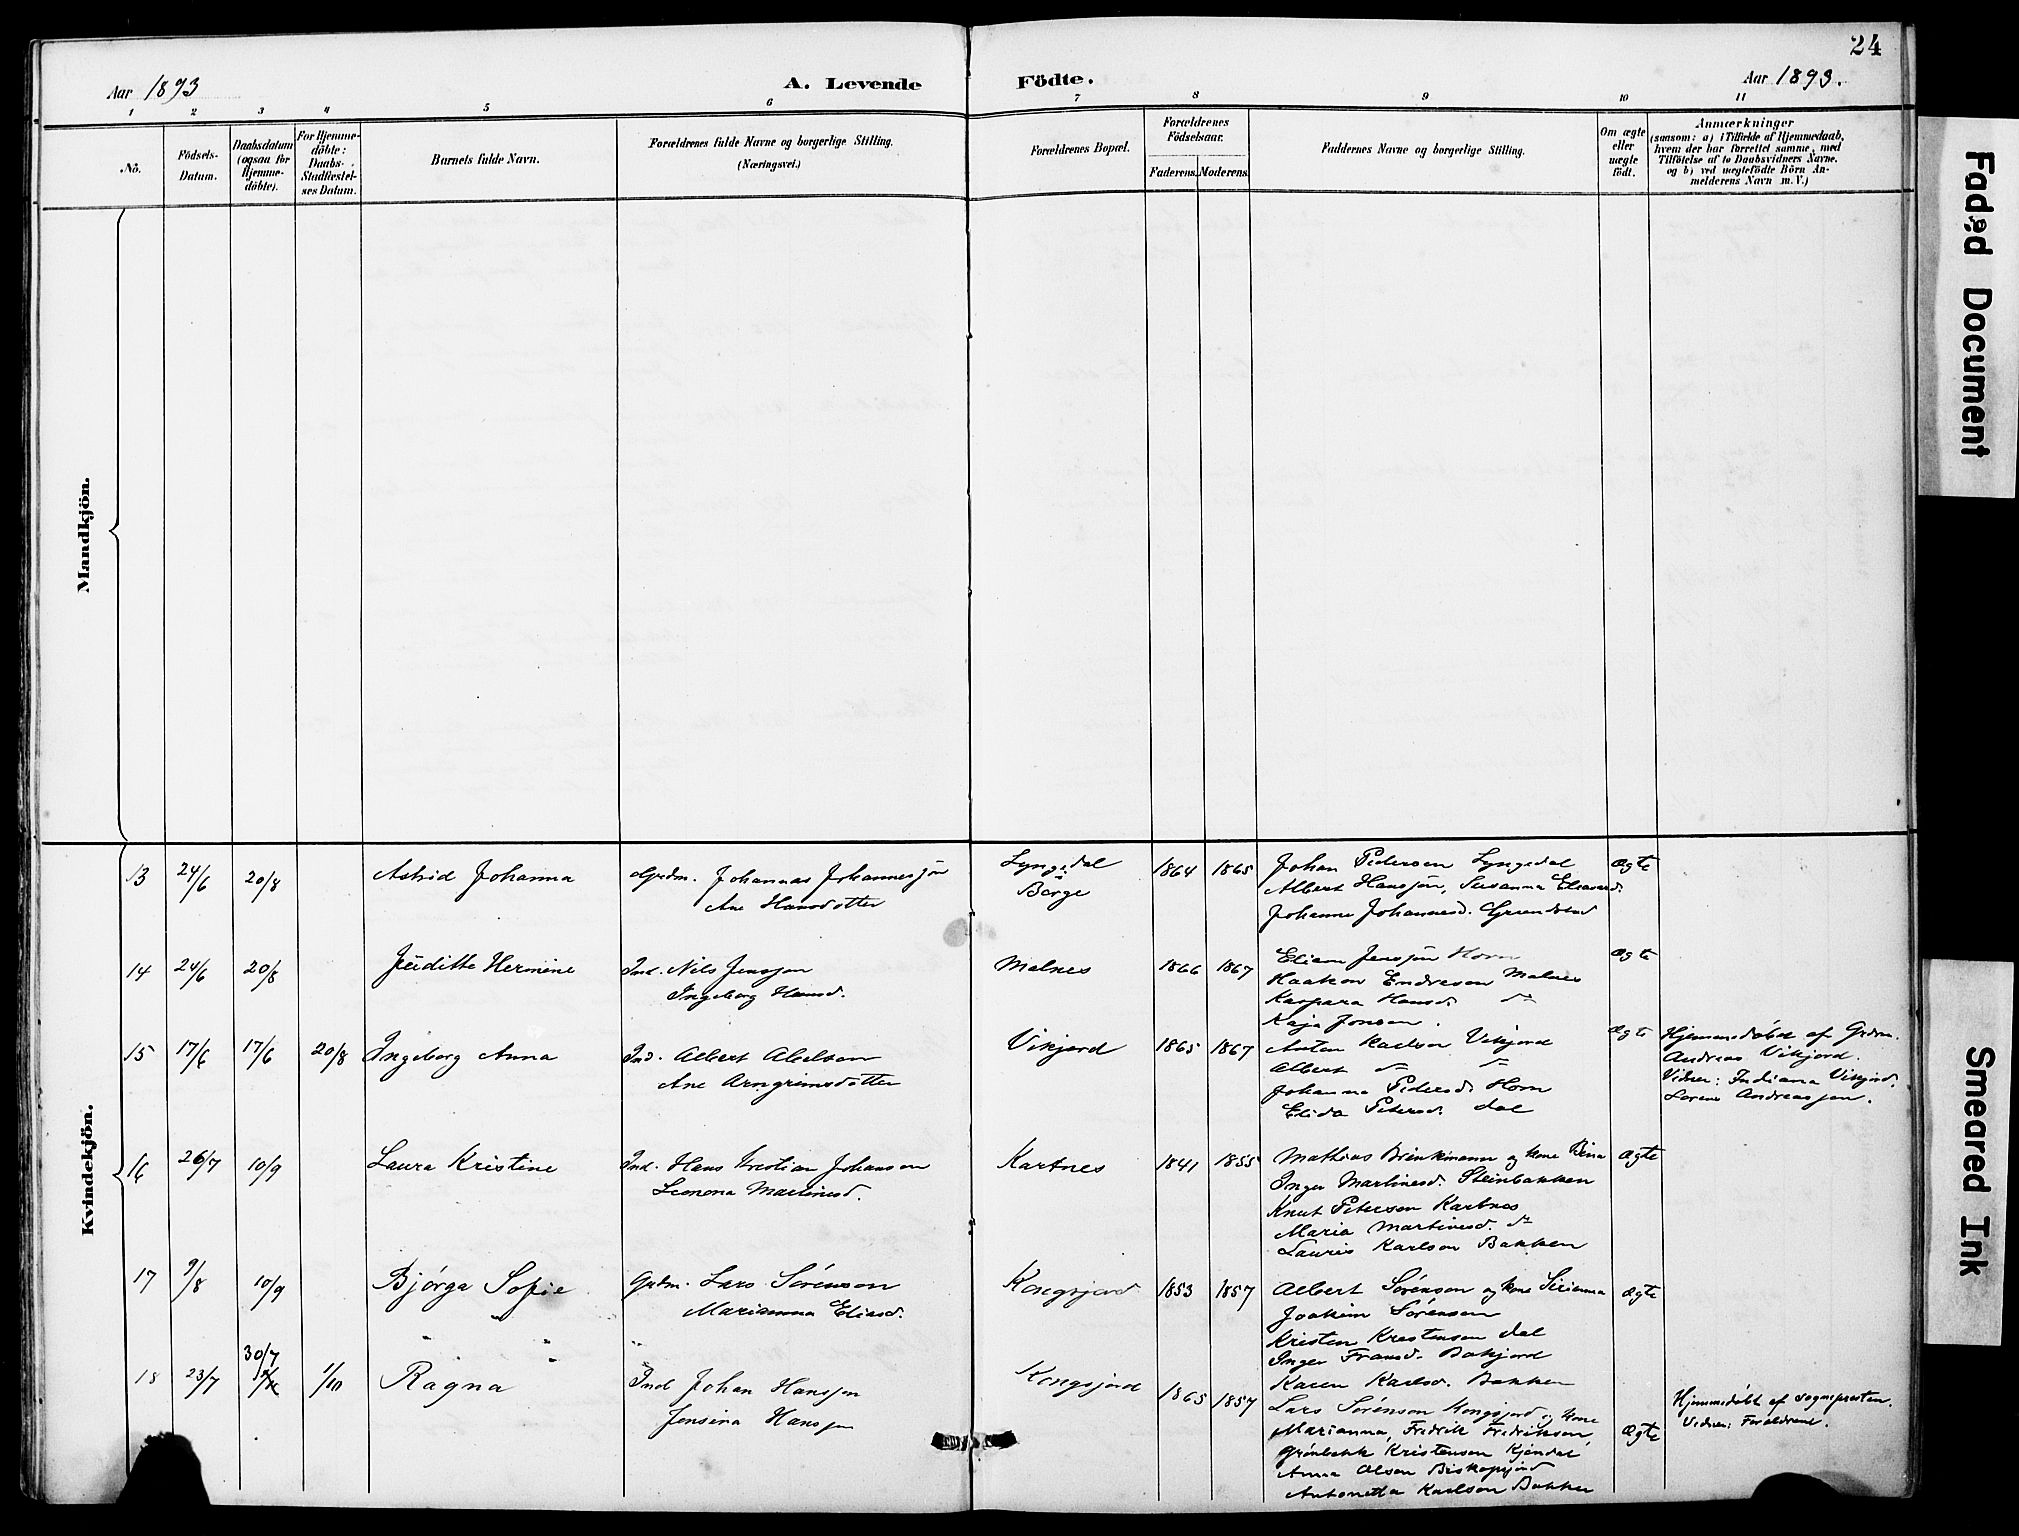 24
Aar 1893
A. Levende
Födte.
Aar 1893.
1 2 3 4 5 6 7 8 9 10 11
No.
Födsels-
Datum.
Daabsdatum
(ogsaa for
Hjemme-
döbte).
For Hjemme-
döbte:
Daabs-
Stadfæstel-
ses Datum.
Barnets fulde Navn.
Forældrenes fulde Navne og borgerlige Stilling.
(Næringsvei.)
Forældrenes Bopæl.
Forældrenes
Födselsaar.
Faderens.
Moderens.
Faddernes Navne og borgerlige Stilling.
Om ægte
eller
uægte
födt.
Anmærkninger
(saasom: a) i Tilfælde af Hjemmedaab,
hvem der har forrettet samme, med
Tilföielse af to Daabsvidners Navne.
og b) ved uægtefödte Börn An-
melderens Navn m. V.)
Mandkjön.
Kvindekjön.
13 24/6 20/8 Astrid Johanna
Grdm. Johannas Johannessjön
Ane Hansdotter
Lyngedal
Borge
1864 1865
Johan Pedersen Lyngedal
Albert Hansjön, Susanna Eliasd.
Johanne Johannesd. Grundstad
Ægte
14 24/6 20/8 Juditte Hermine
Ind. Nils Jensjon
Ingeborg Hansd.
Malnes
1866 1867
Eliam Jensjön Horn
Haakon Endresen Malnes
Kaspara Hansd. do
Kaja Jonsen.
Ægte
15 17/6 17/6 20/8 Ingeborg Anna
Ind. Albert Abelson
Ane Arngrimsdotter
Vikjord
1865 1867
Anton Karlson Vikjord
Albert do do
Johanna Pedersd. Horn
Elida Petersd. Dal
Ægte
Hjemmedøbt af Grdm.
Andreas Vikjord.
Vidner: Indiana Vikjord.
Lorens Andreasjen.
16 26/7 10/9 Laura Kristine
Ind. Hans Kristian Johanson
Leonona Martinesd.
Kartnes
1841 1855
Mathias Brinkmann og kone Bina
Inger Martinesd. Steinbakken
Knut Peterson Kartnes
Maria Martinesd. do
Lauris Karlson Bakken
Ægte
17 9/8 10/9 Bjørga Sofie
Grdm. Lars Sørenson
Marianna Eliasd.
Kongsjord
1853 1857
Albert Sørenson og kone Sirianna
Joakim Sørensen
Kristen Kristensen Dal
Inger Fransd. Bakjord
Karen Karlsd. Bakken
Ægte
18 23/7 30/7 1/10 Ragna
Ind Johan Hansjen
Jensina Hansjen
Kongsjord
1865 1857
Lars Sørenson Kongsjord og kone
Marianna, Fredrik Fredriksen
Grønbekk Kristensen Kjendal
Anna Olsen Biskopsjord
Antonetta Karlson Bakken
Ægte
Hjemmedøbt af sogneprosten.
Vidner: Forældrene.
Faded Document
Smeared Ink